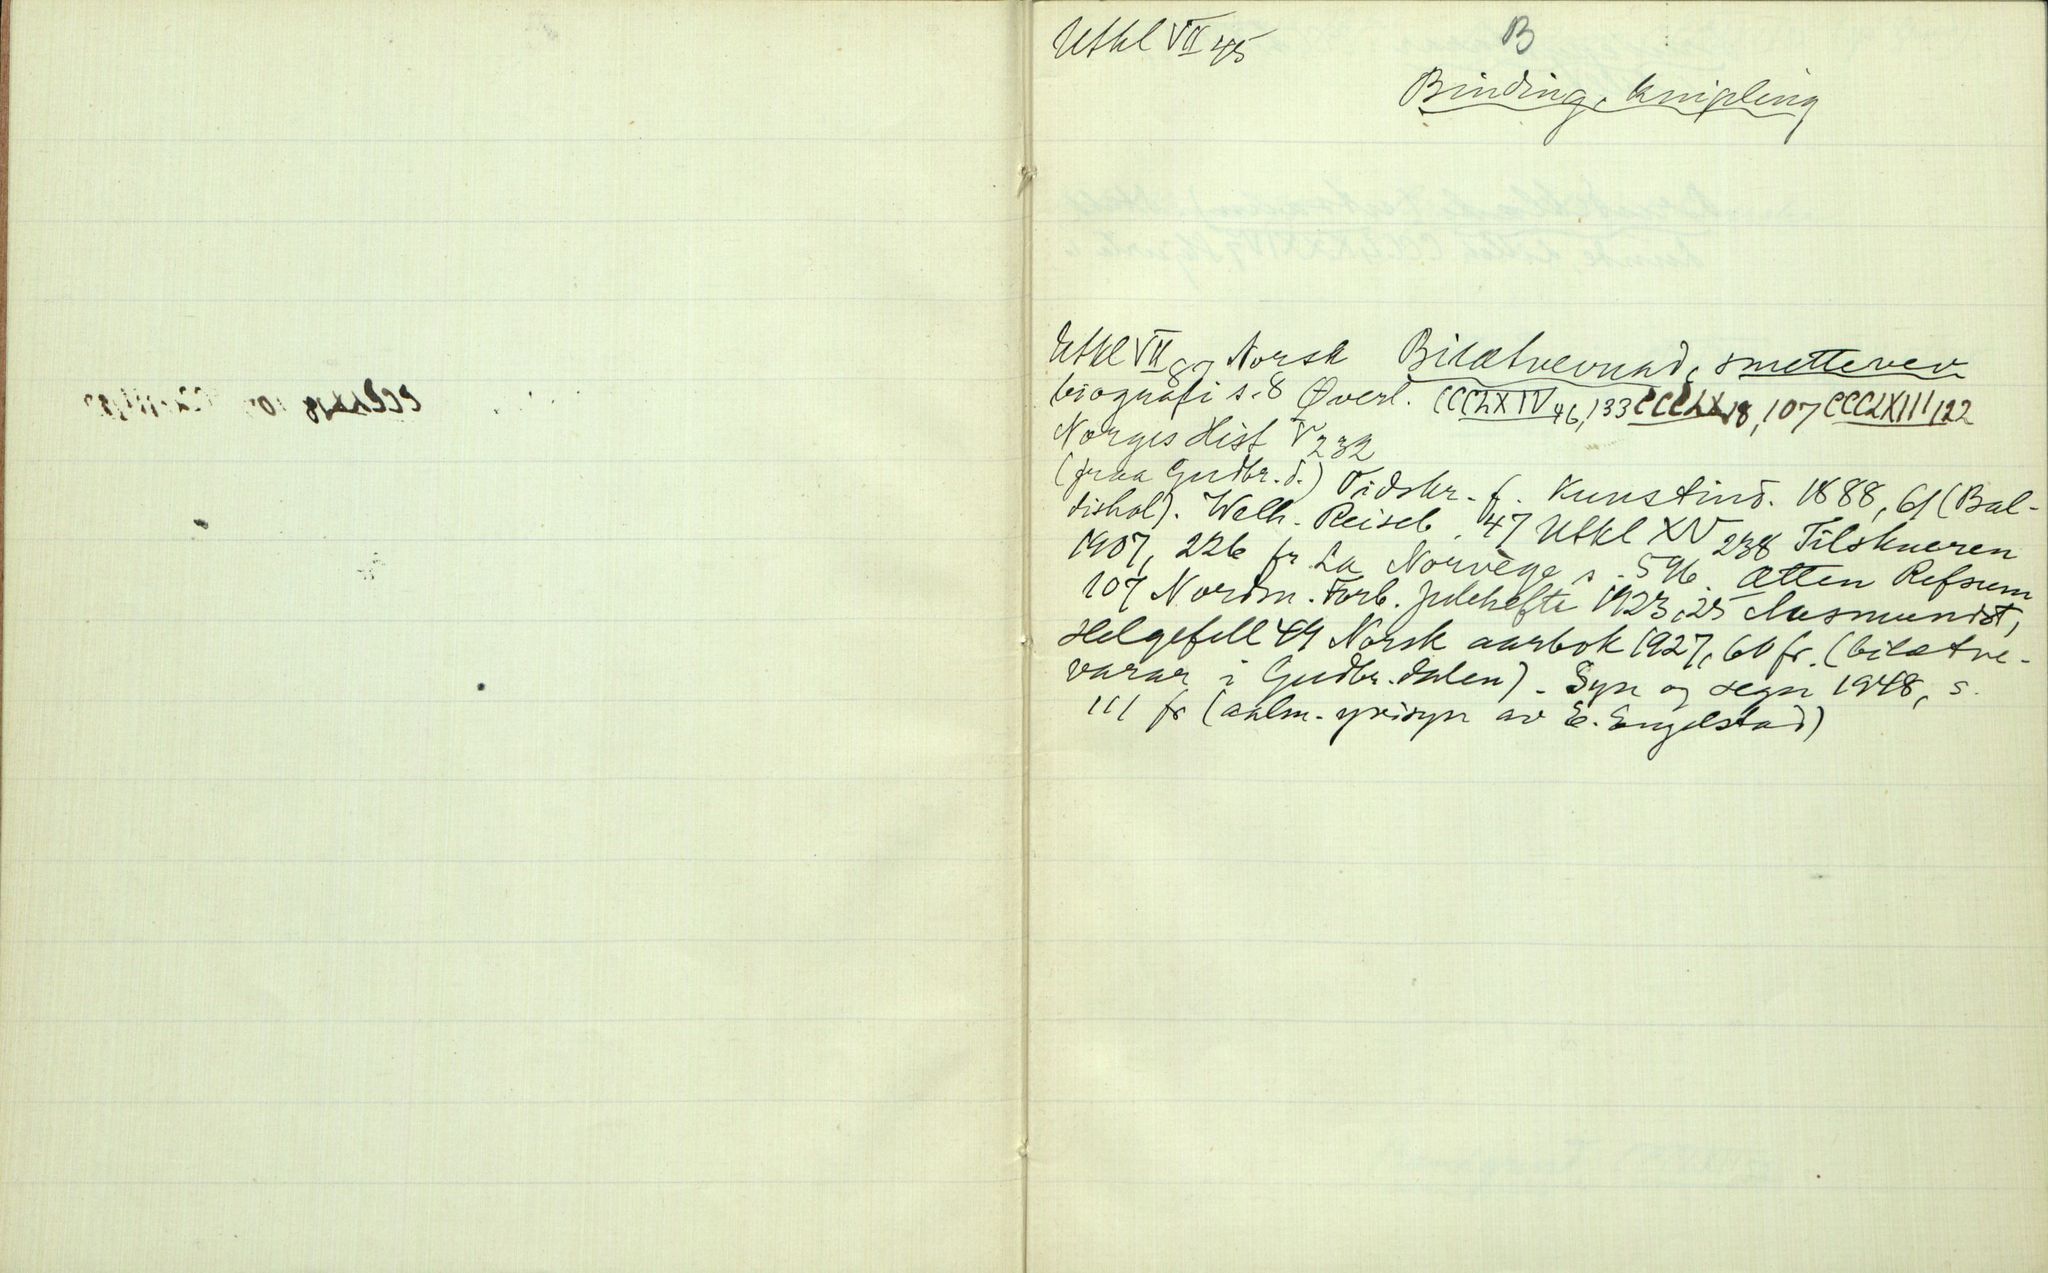 Utkl VII 45
B
Binding, knipling
Utkl VII 87 Norsk Biletvevnad, smettevev
biografi s. 8 Øverl. CCCLXIV 46, 133 CCCLX 18, 107 CCCLXIII 122
Norges Hist V 232
(fraa Gudbr.d.) Tidskr. f. Kunstind. 1888, 61 (Bal-
dishol). Welh. Reiseb. 47 Utkl XV 238 Tilskueren
1907, 226 fr La Norvège s. 596. Ætten Refsum
107 Nordm. Forb. julehefte 1923, 25 Aasmundst,
Helgefell 49 Norsk aarbok 1927, 60 fr. (biletve-
varar i Gudbr.dalen). Syn og segn 1948, s.
111 fr (aalm. yvisyn av E. Engelstad)